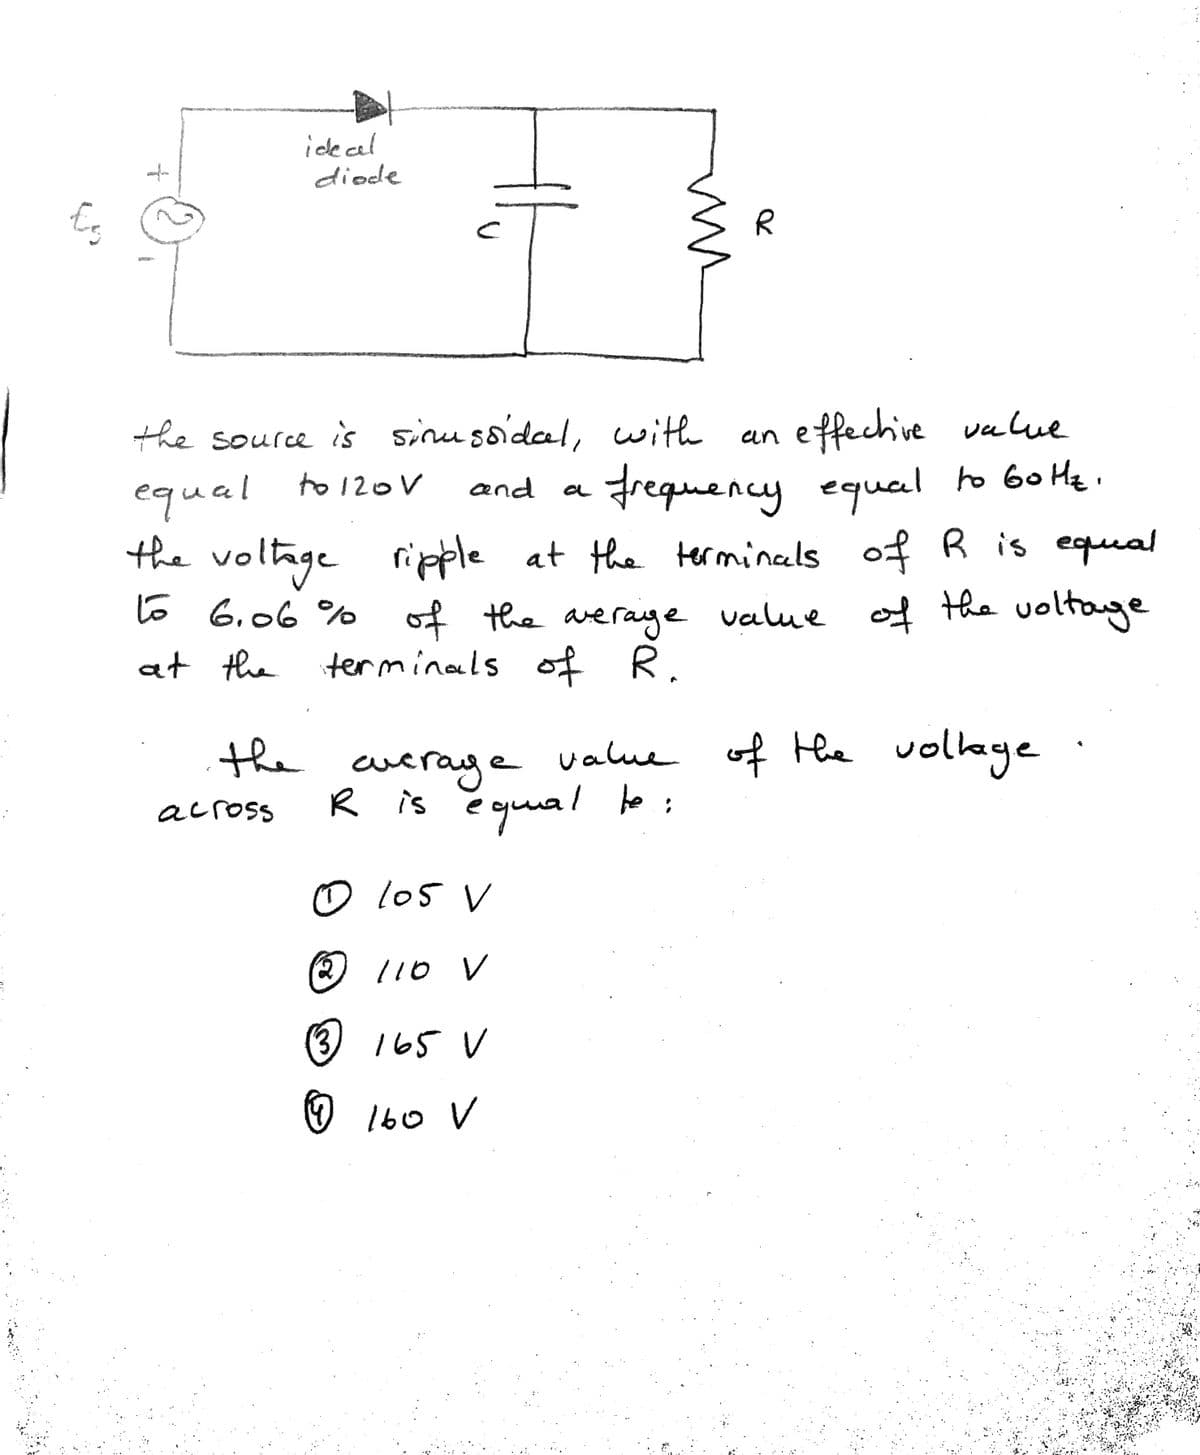 ideal
diode
+
Es
-
C
R
the source is sinusoidal, with an effective value
equal to 120 V and a frequency equal to 60 Hz.
the voltage ripple at the terminals of R is equal
to 6.06 % of the average value of the voltage
at the terminals of R.
the average value of the voltage
across R is equal to :
① 105 V
② 110 V
③ 165 V
④ 160 V